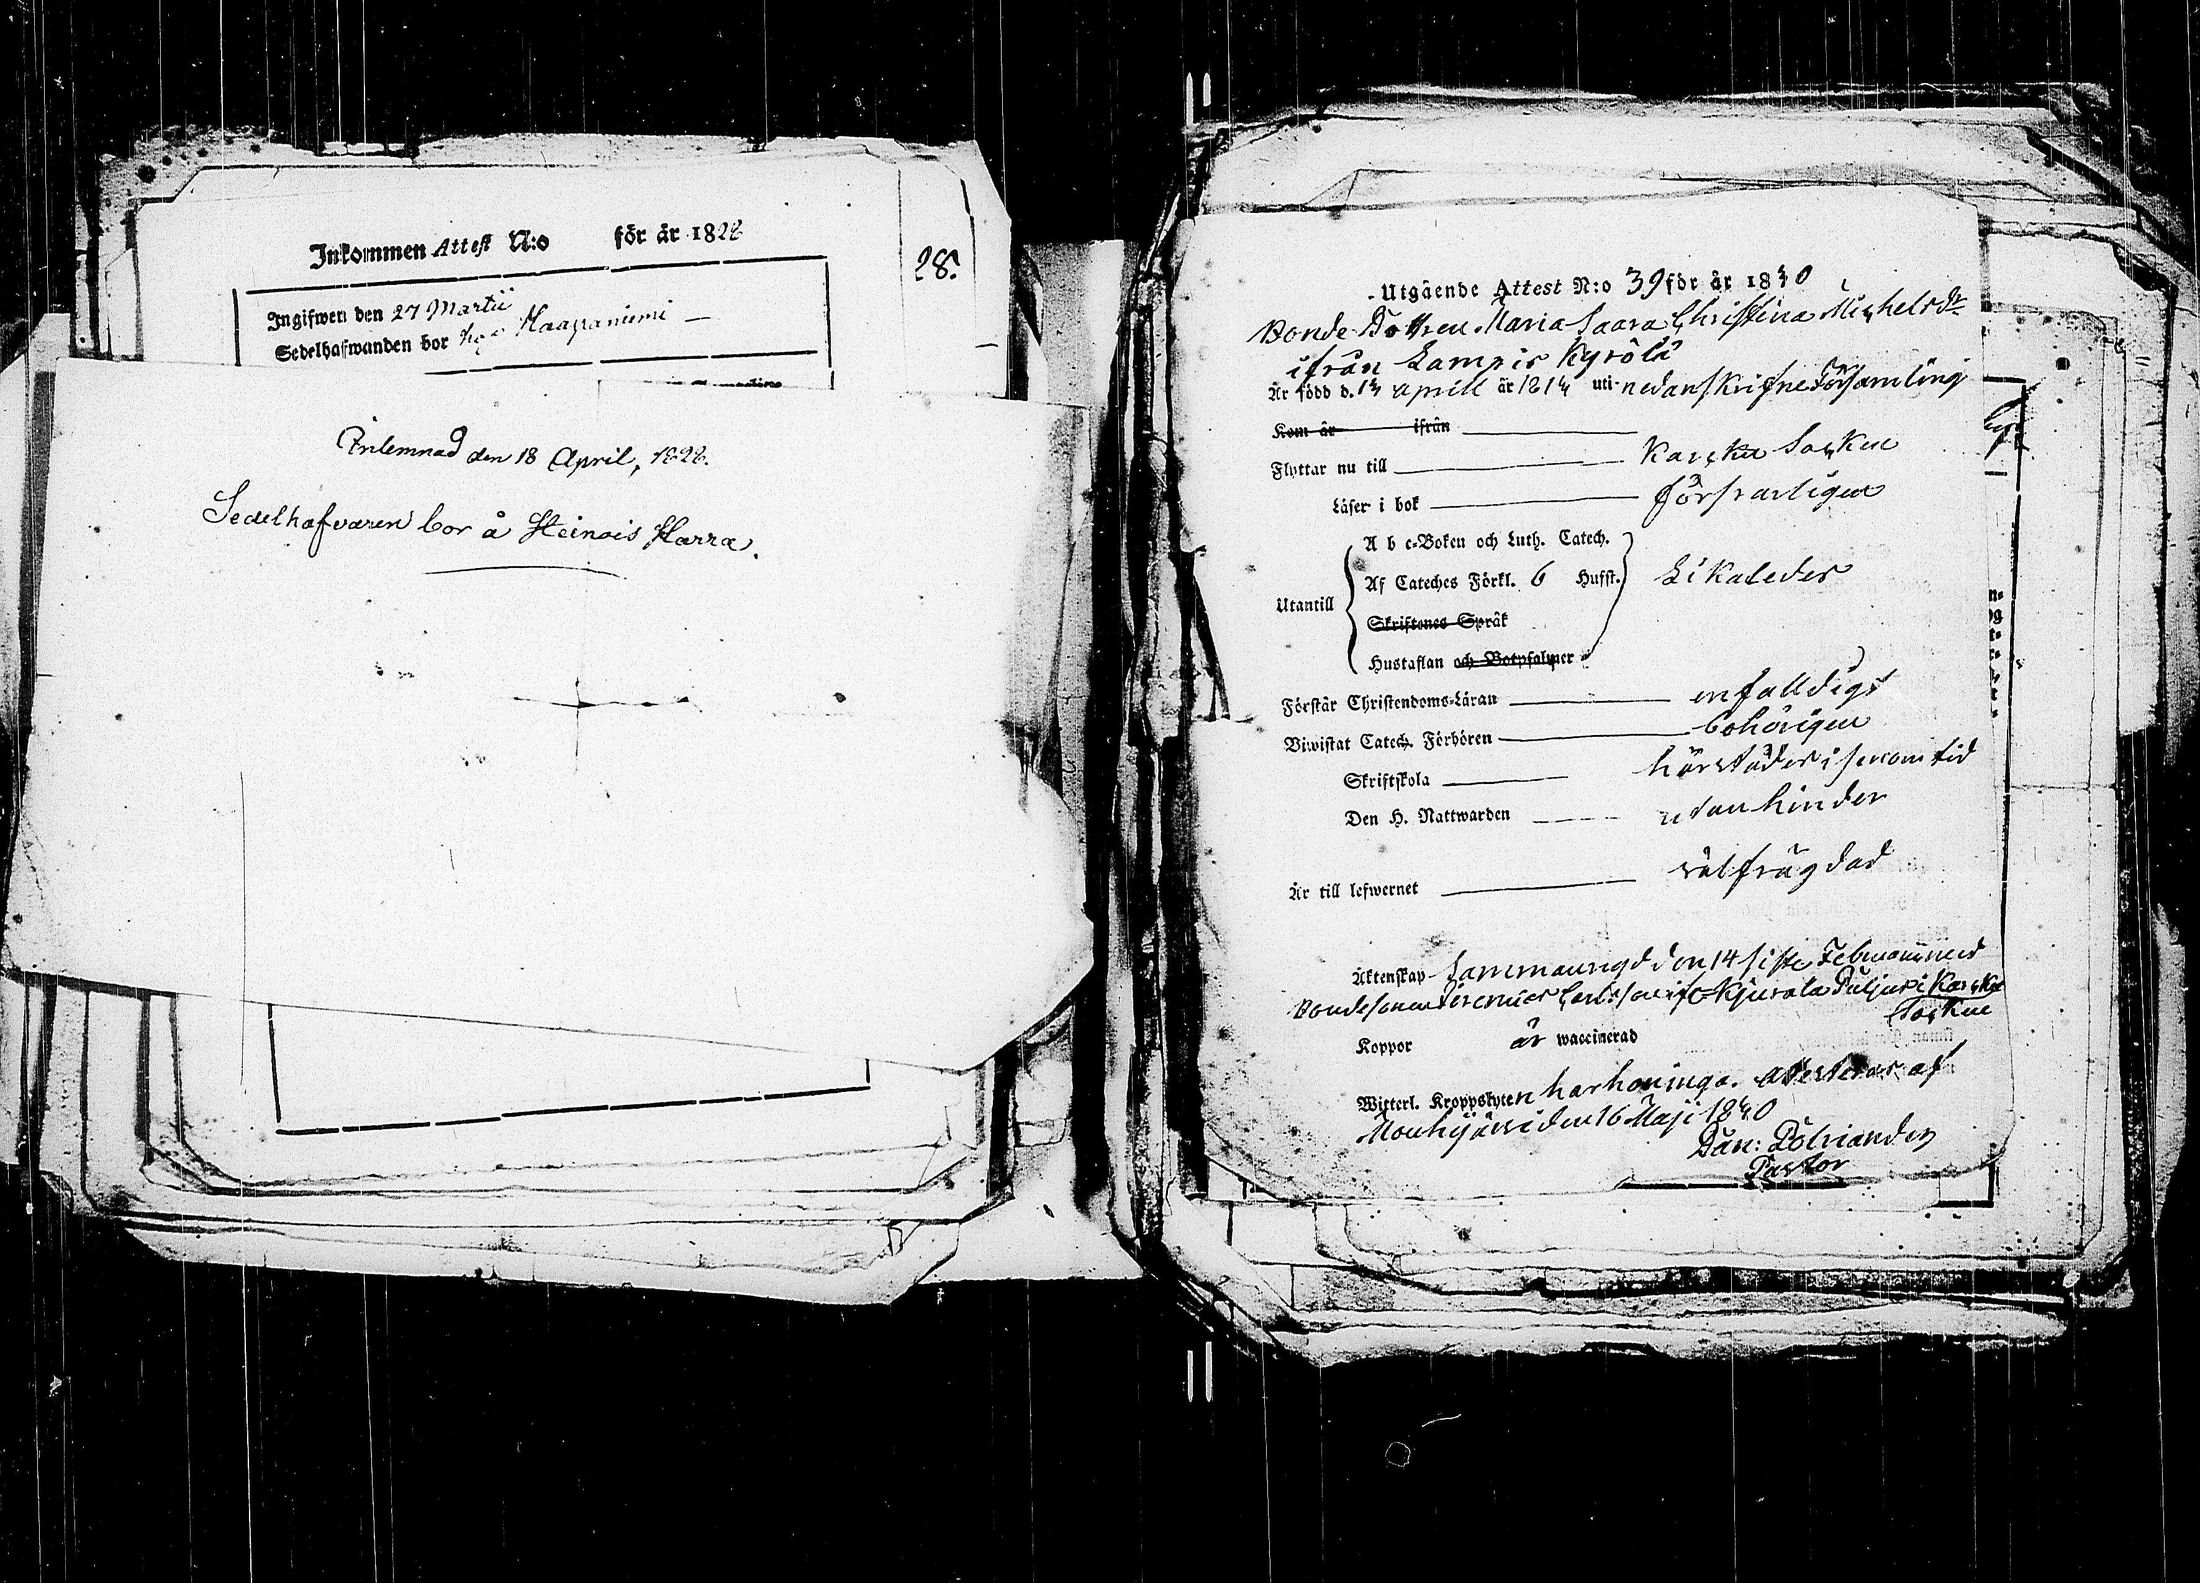 Inkommen Attest N:o för år 1828
28.
Ingifwen den 27 Martii
Sedelhafwanden bor Haapaniemi —
Inlemnad den 18 April, 1828.
Sedelhafvaren bor å Heinois Harra.
Utgående Attest N:o 39 för år 1840
Bonde Dottren Maria Saara Christina Michelsdr
ifrån Lampis Kyrölä
Är född d. April år 181 uti nedanskrifne Församling
Kom år ifrån
Flyttar nu till Karcku Socken
Läser i bok försvarligen
A b c-Boken och Luth. Catech.
Utantill Af Cateches Förkl. 6 Hufst. Likaledes
Skriftenes Språk
Hustaflan och Botpsalmer
Förstår Christendoms-Läran enfalldigt
Biwistat Catech. Förhören behörigen
Skriftskola härstädes i senom tid
Den H. Nattwarden utan hinder
Är till lefwernet välfrägdad
Äktenskap Sammanvigd den 14 siste Februarii med
Bondesonen Carlsson ifr Kjurala Puljus i Karcku
Socken
Koppor är waccinerad
Witterl. Kroppslyten har hon inga. Attesteras af
Mouhijärvi den 16 Maji 1840
Dan: Polviander
Pastor